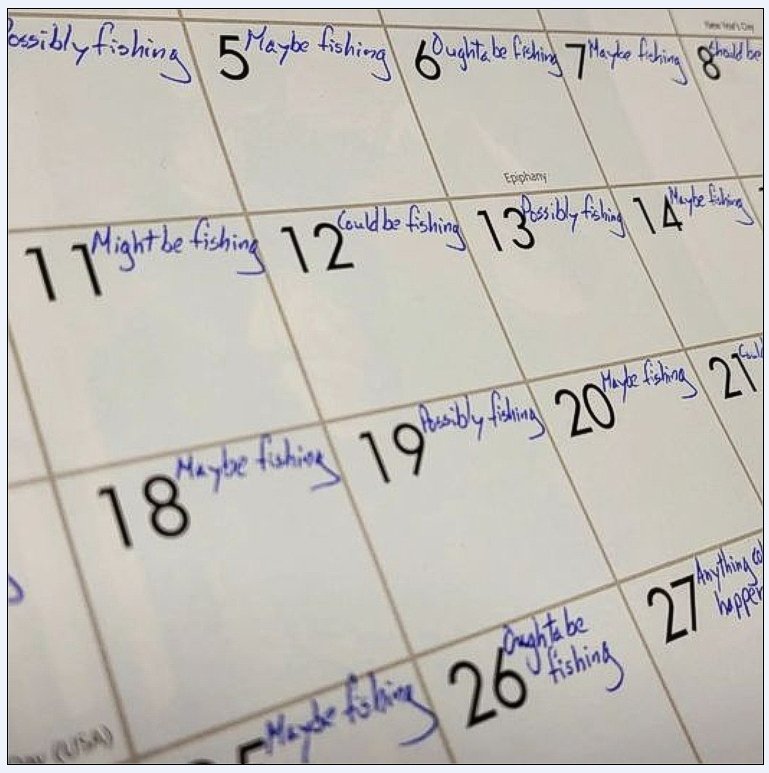 New Year's Day
ossibly fishing
5 Maybe fishing
6 Oughta be fishing
7 Maybe fishing
8 Should be
Epiphany
11 Might be fishing
12 Could be fishing
13 Possibly fishing
14 Maybe fishing
18 Maybe fishing
19 Possibly fishing
20 Maybe fishing
21 Coul
Maybe fishing
26 Oughta be
fishing
27 Anything co
happen
(USA)